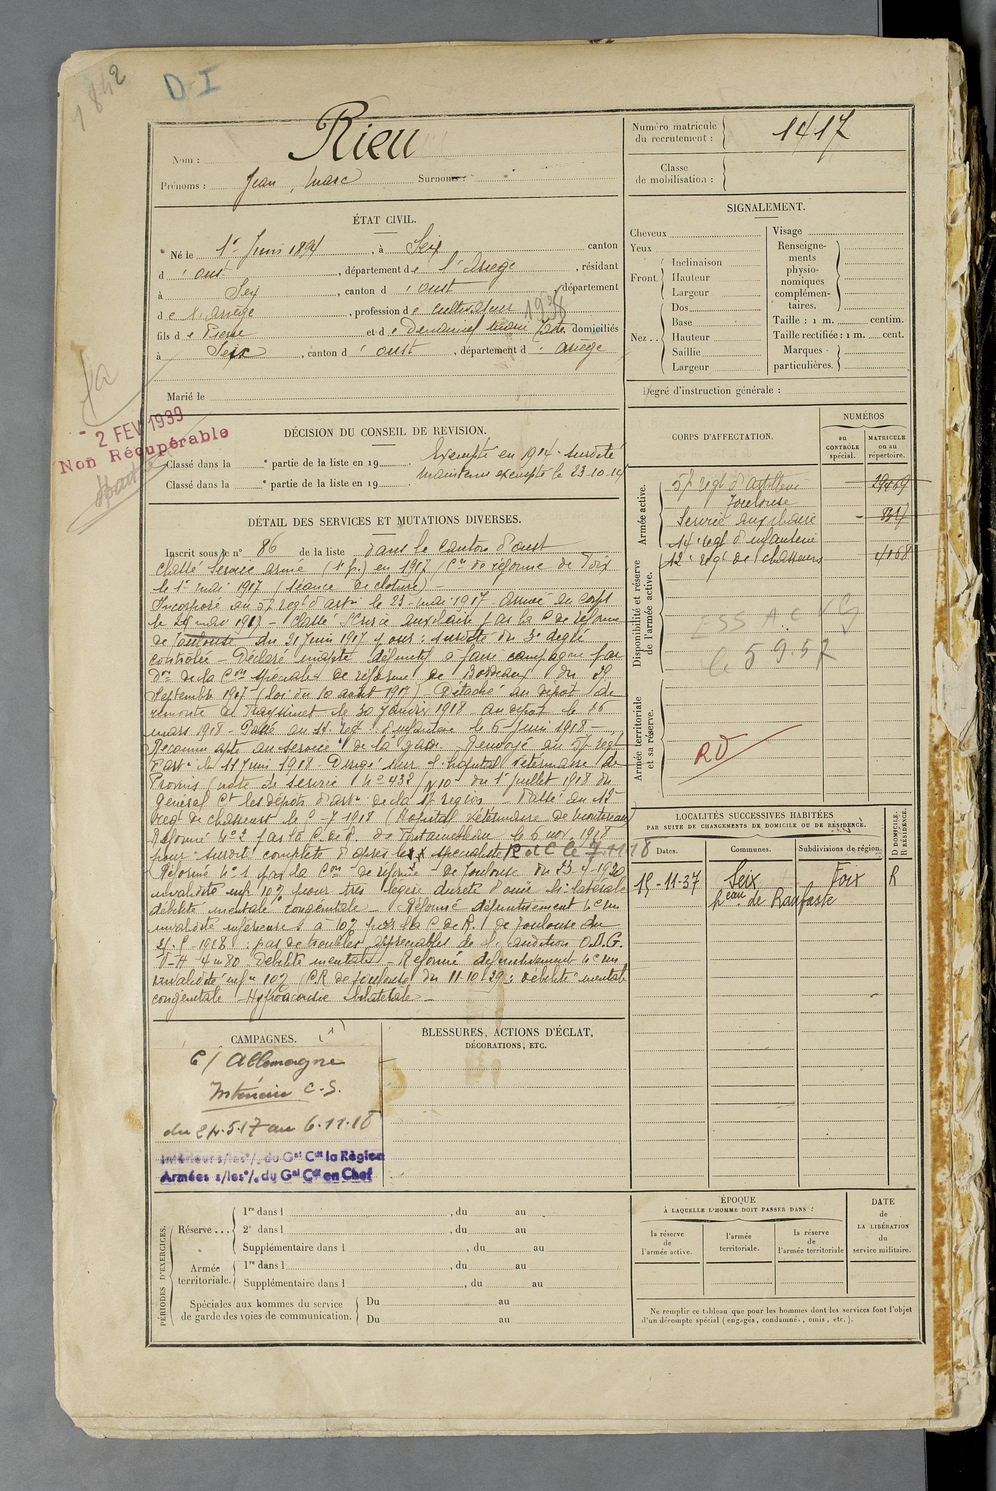 1842
D-I
Nom : Rieu
Prénoms : Jean, Marc Surnoms :
Numéro matricule du recrutement : 1417
Classe de mobilisation :
ÉTAT CIVIL.
Né le 1er Juin 1894, à Seix canton
d'Oust, département de l'Ariège, résidant
à Seix, canton d'Oust, département
de l'Ariège, profession de cultivateur
fils de Pierre et de domiciliés
à Seix, canton d'Oust, département d'Ariège
Marié le
SIGNALEMENT.
Cheveux
Yeux
Front. Inclinaison
Hauteur
Largeur
Nez.. Dos
Base
Hauteur
Saillie
Largeur
Visage
Renseigne-
ments
physio-
nomiques
complémen-
taires.
Taille : 1 m. centim.
Taille rectifiée : 1 m. cent.
Marques
particulières.
Degré d'instruction générale :
- 2 FEV 1939
Non Récupérable
DÉCISION DU CONSEIL DE REVISION.
Exempté en 1914 - surdité
Classé dans la e partie de la liste en 19 maintenu exempté le 23.10.14
Classé dans la e partie de la liste en 19
DÉTAIL DES SERVICES ET MUTATIONS DIVERSES.
Inscrit sous le n° 86 de la liste dans le canton d'Oust
Classé Service armé (1e p.) en 1917 Con de réforme de Foix
le 1er mai 1917 (séance de clôture) -
Incorporé au 57 regt d'artie le 23 mai 1917 - arrivé au corps
le 24 mai 1917 - Classé Service auxiliaire par la C de réforme
de Toulouse du 21 Juin 1917 pour : surdité du 3e degré
contrôlée - Déclaré inapte définitif à faire campagne par
Don de la Con spéciale de réforme de Bordeaux du 29
Septembre 1917 (Loi du 10 août 1917) Détaché au dépôt de
remonte de le 30 Janvier 1918 au dépôt le 16
mars 1918 - Passé au 14 regt d'infanterie le 6 Juin 1918 -
Reconnu apte au service de la gare. Renvoyé au 57 regt
d'artie le 11 Juin 1918 - Dirigé sur l'hôpital vétérinaire de
(note de service N° 438 du 1er Juillet 1918 du
Général Ct les dépôts d'artie de la 17 région - Passé au 12e
regt de chasseurs le -7 1918 (Hôpital vétérinaire de Montereau)
Réformé N° 2 par la C. de R. de Fontainebleau le 6 nov. 1918
pour surdité complète d'après le spécialiste R et C le 7.11.18
Réformé N° 1 par la Con de réforme de Toulouse du 23-4-1920
invalidité infre 10% pour très légère dureté d'ouïe bi-latérale
débilité mentale congénitale - Réformé définitivement N° un
invalidité inférieure à 10% par la C de R. de Toulouse du
1928 : pas de troubles appréciables de l'audition O.D.G.
V-H 4m80 Débilité mentale - Réformé définitivement N° un
invalidité infre 10% (C.R de Toulouse du 11.10.39 : Débilité mentale
congénitale - Hypoacousie bilatérale -
CORPS D'AFFECTATION.
NUMÉROS
au CONTRÔLE spécial.
MATRICULE ou au répertoire.
Armée active.
57 regt d'artillerie
Toulouse
Service auxiliaire
14e regt d'infanterie
12e regt de chasseurs 4168
Disponibilité et réserve de l'armée active.
ESS A.C VG
le 5 9.57
Armée territoriale et sa réserve.
RD
LOCALITÉS SUCCESSIVES HABITÉES
PAR SUITE DE CHANGEMENTS DE DOMICILE OU DE RÉSIDENCE.
Dates. Communes. Subdivisions de région. D DOMICILE. R RÉSIDENCE.
15-11-37 Seix Foix R
heau de Raufaste
CAMPAGNES.
C/ Allemagne
Intérieur C.S.
du 24.5.17 au 6.11.18
Intérieur s/les o/. du Gal Ct la Région
Armées s/les o/. du Gal Ct en Chef
BLESSURES, ACTIONS D'ÉCLAT,
DÉCORATIONS, ETC.
PÉRIODES D'EXERCICES.
Réserve... 1re dans l , du au
2e dans l , du au
Supplémentaire dans l , du au
Armée territoriale. 1re dans l , du au
Supplémentaire dans l , du au
Spéciales aux hommes du service de garde des voies de communication. Du au
Du au
ÉPOQUE
À LAQUELLE L'HOMME DOIT PASSER DANS :
la réserve de l'armée active.
l'armée territoriale.
la réserve de l'armée territoriale
DATE
de
LA LIBÉRATION
du
service militaire.
Ne remplir ce tableau que pour les hommes dont les services font l'objet
d'un décompte spécial (engagés, condamnés, omis, etc.).